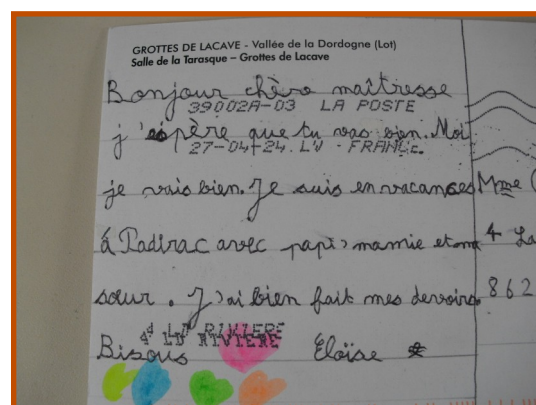 GROTTES DE LACAVE - Vallée de la Dordogne (Lot)
Salle de la Tarasque – Grottes de Lacave
Bonjour chère maîtresse
39002A-03 LA POSTE
j'espère que tu vas bien. Moi
27-04-24 FRANCE
je vais bien. Je suis en vacances
Mme
à Padirac avec papi, mamie et ma
4 La
sœur. J'ai bien fait mes devoirs
862
LA RIVIERE
Bisous Éloïse